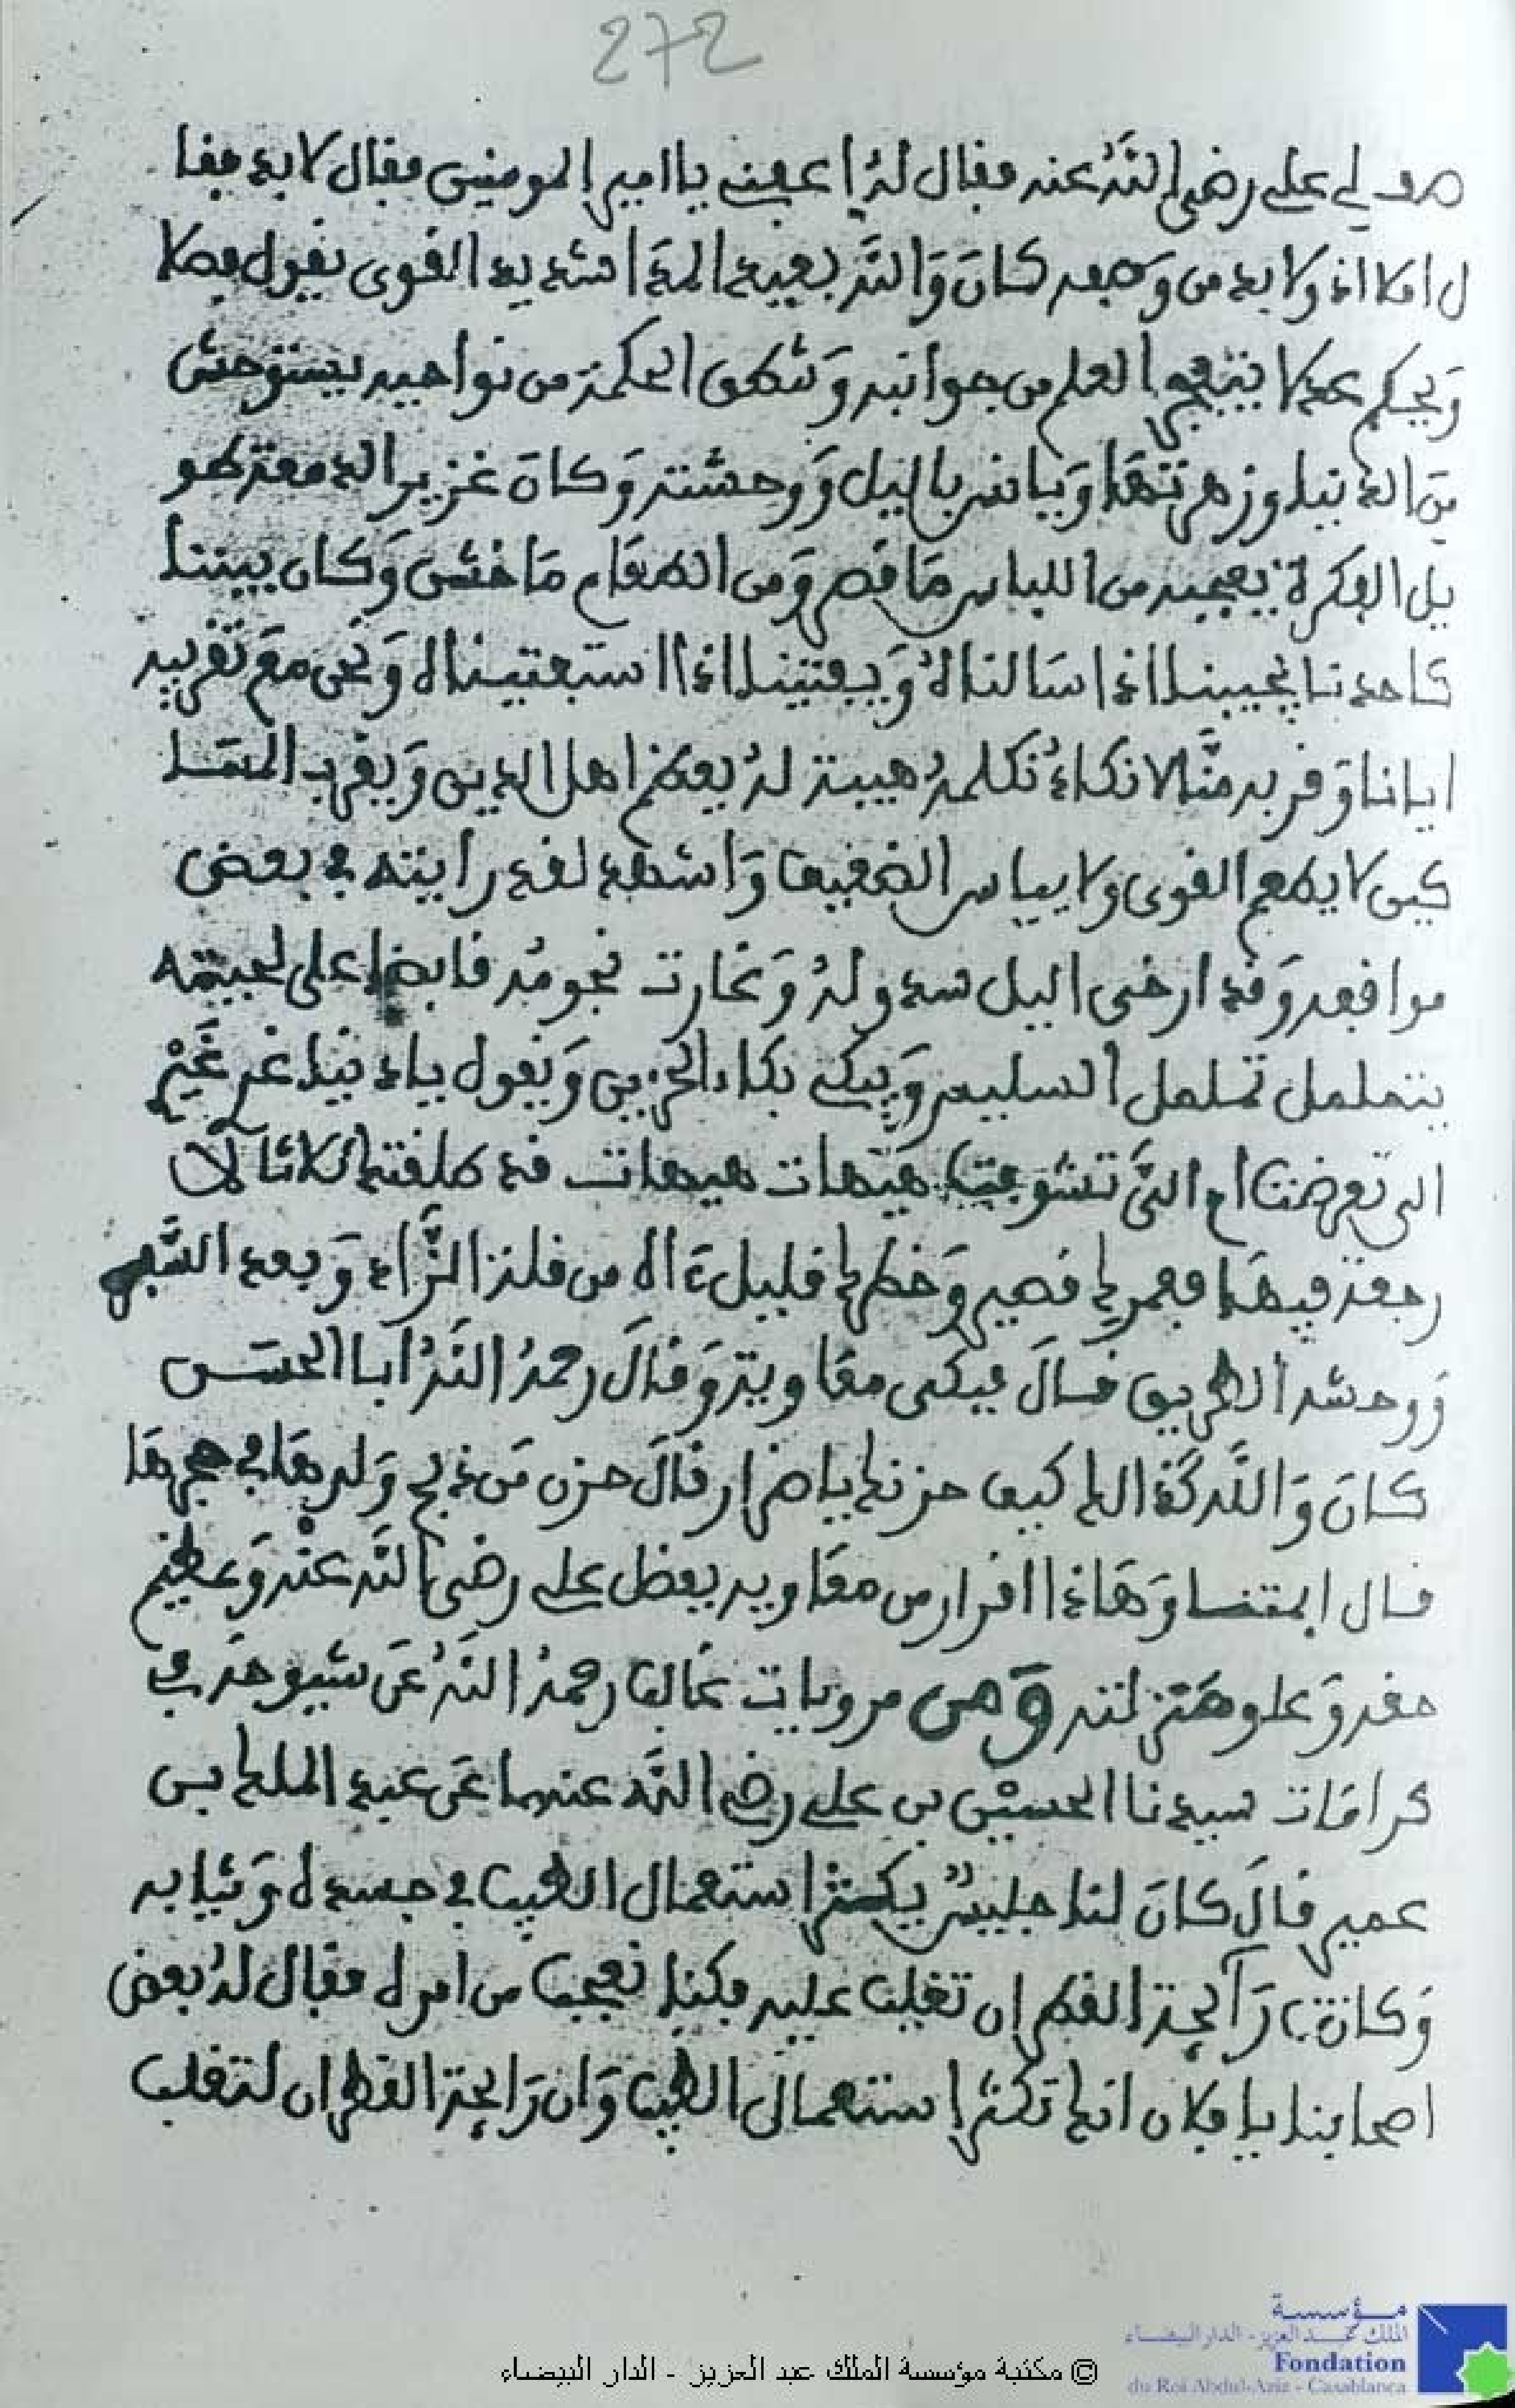 272
صف لي علي رضي الله عنه فقال له اعفني يا امير المومنين فقال لا بد فقا
ل اما اذ ولا بد من وصفه كان والله بعيد المدا شديد القوى يقول فصلا
ويحكم عدلا يتفجر العلم من جوانبه وتنطق الحكمة من نواحيه يستوحش
من الدنيا وزهرتها ويانس باليل ووحشته وكان غزير الدمعة طو
يل الفكرة يعجبه من اللباس ما قصر ومن الطعام ما خشن وكان بيننا
كاحدنا يجيبنا اذا سالناه ويفتينا اذا استفتيناه ونحن مع تقريبه
ايانا وقربه منا لا نكاد نكلمه هيبة له يعظم اهل الدين ويقرب المسا
كين لا يطمع القوى ولا يياس الضعيف واشهد لقد رايته في بعض
مواقفه وقد ارخى اليل سدوله وغارت نجومه قابضا على لحيته
يتململ تململ السليم ويبكي بكاء الحزين ويقول يا دنيا غر غير
الى تعرضت ام الي تشوقت هيهات هيهات قد طلقتك ثلاثا لا
رجعة فيها فعمرك قصير وخطرك قليل ءاه من قلة الزاد وبعد السفر
ووحشه الطريق قال فبكى معاوية وقال رحم الله ابا الحسن
كان والله كذالك كيف حزنك يا ضرار قال حزن من ذبح ولدها في حجرها
قال ابمتنا وهاذا اقرار من معاويه بفضل علي رضي الله عنه وعظيم
حقه وعلو منزلته ومن مرويات غالب رحمه الله عن شيوخه في
كرامات سيدنا الحسين بن علي رضي الله عنهما عن عبد الملك بن
عمير قال كان لنا جليس يكثر استعمال الطيب في جسده وثيابه
وكانت رآيحة القطران تغلب عليه فكنا نعجب من امره فقال له بعض
اصحابنا يا فلان انك تكثر استعمال الطيب وان رايحة القطران لتغلب
© مكتبة مؤسسة الملك عبد العزيز - الدار البيضاء
مؤسسة
الملك عبد العزيز - الدار البيضاء
Fondation
du Roi Abdul-Aziz - Casablanca